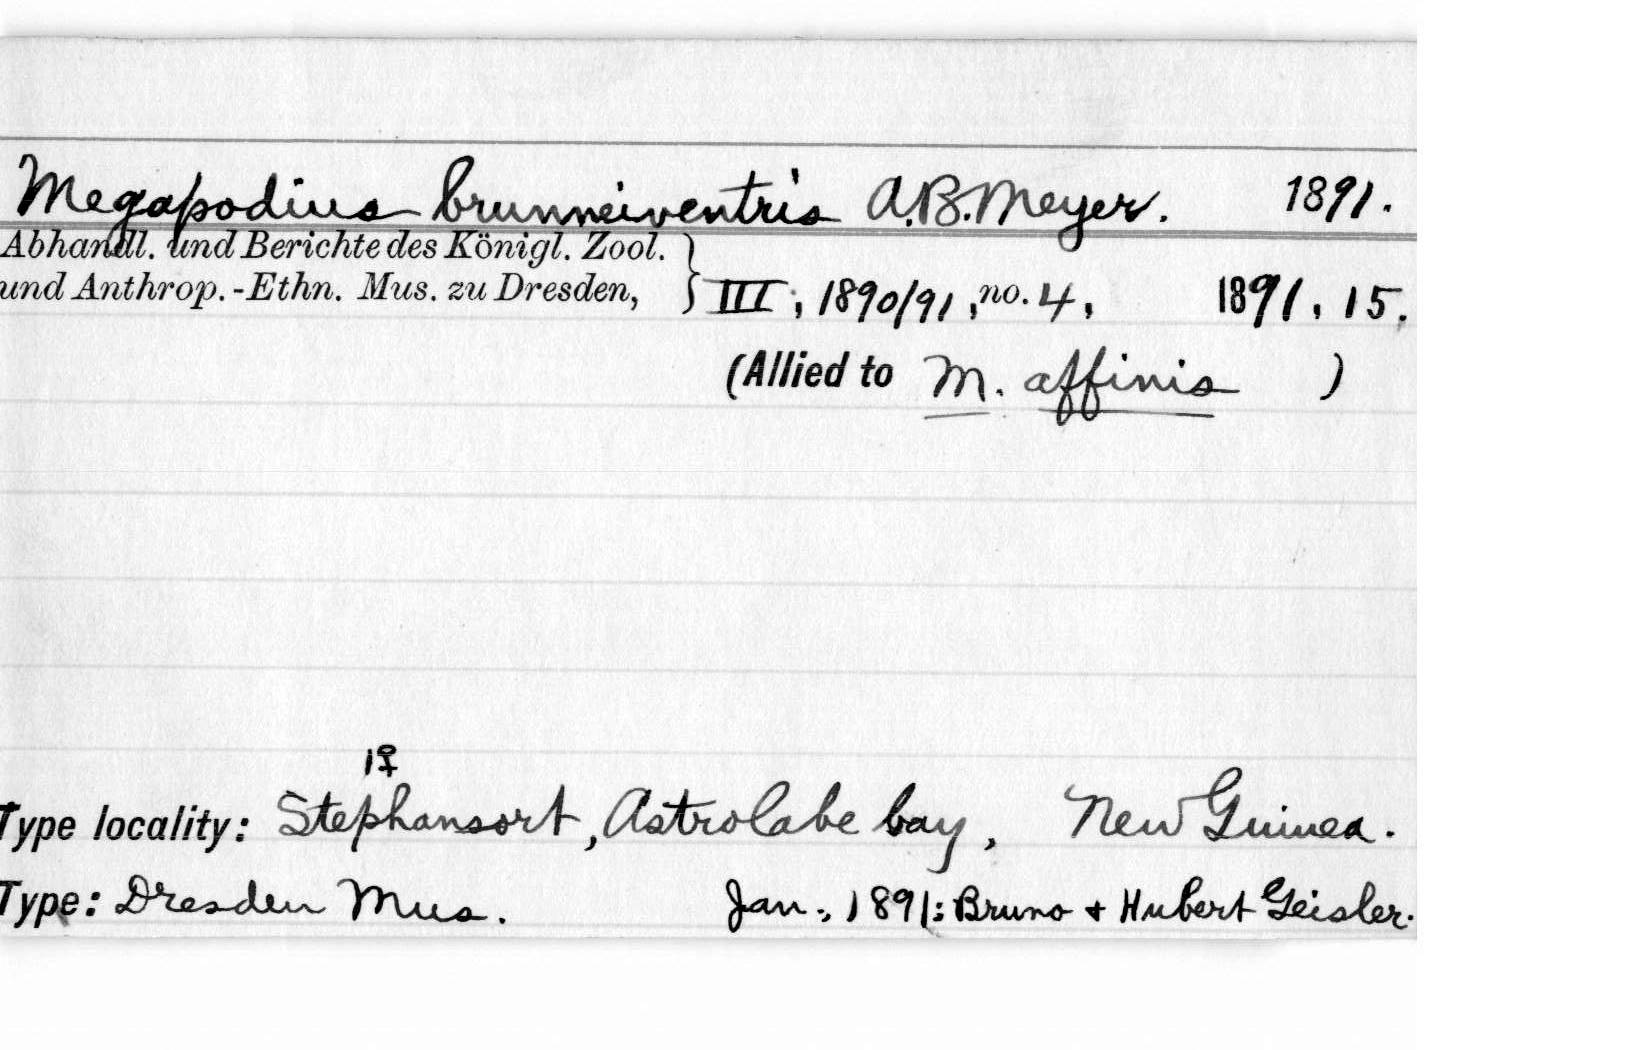 Megapodius brunneiventris A.B. Meyer. 1891.
Abhandl. und Berichte des Königl. Zool.
und Anthrop.-Ethn. Mus. zu Dresden, } III, 1890/91, no. 4, 1891, 15.
(Allied to M. affinis )
1♀
Type locality: Stephansort, Astrolabe bay, New Guinea.
Type: Dresden Mus. Jan., 1891: Bruno + Hubert Geisler.